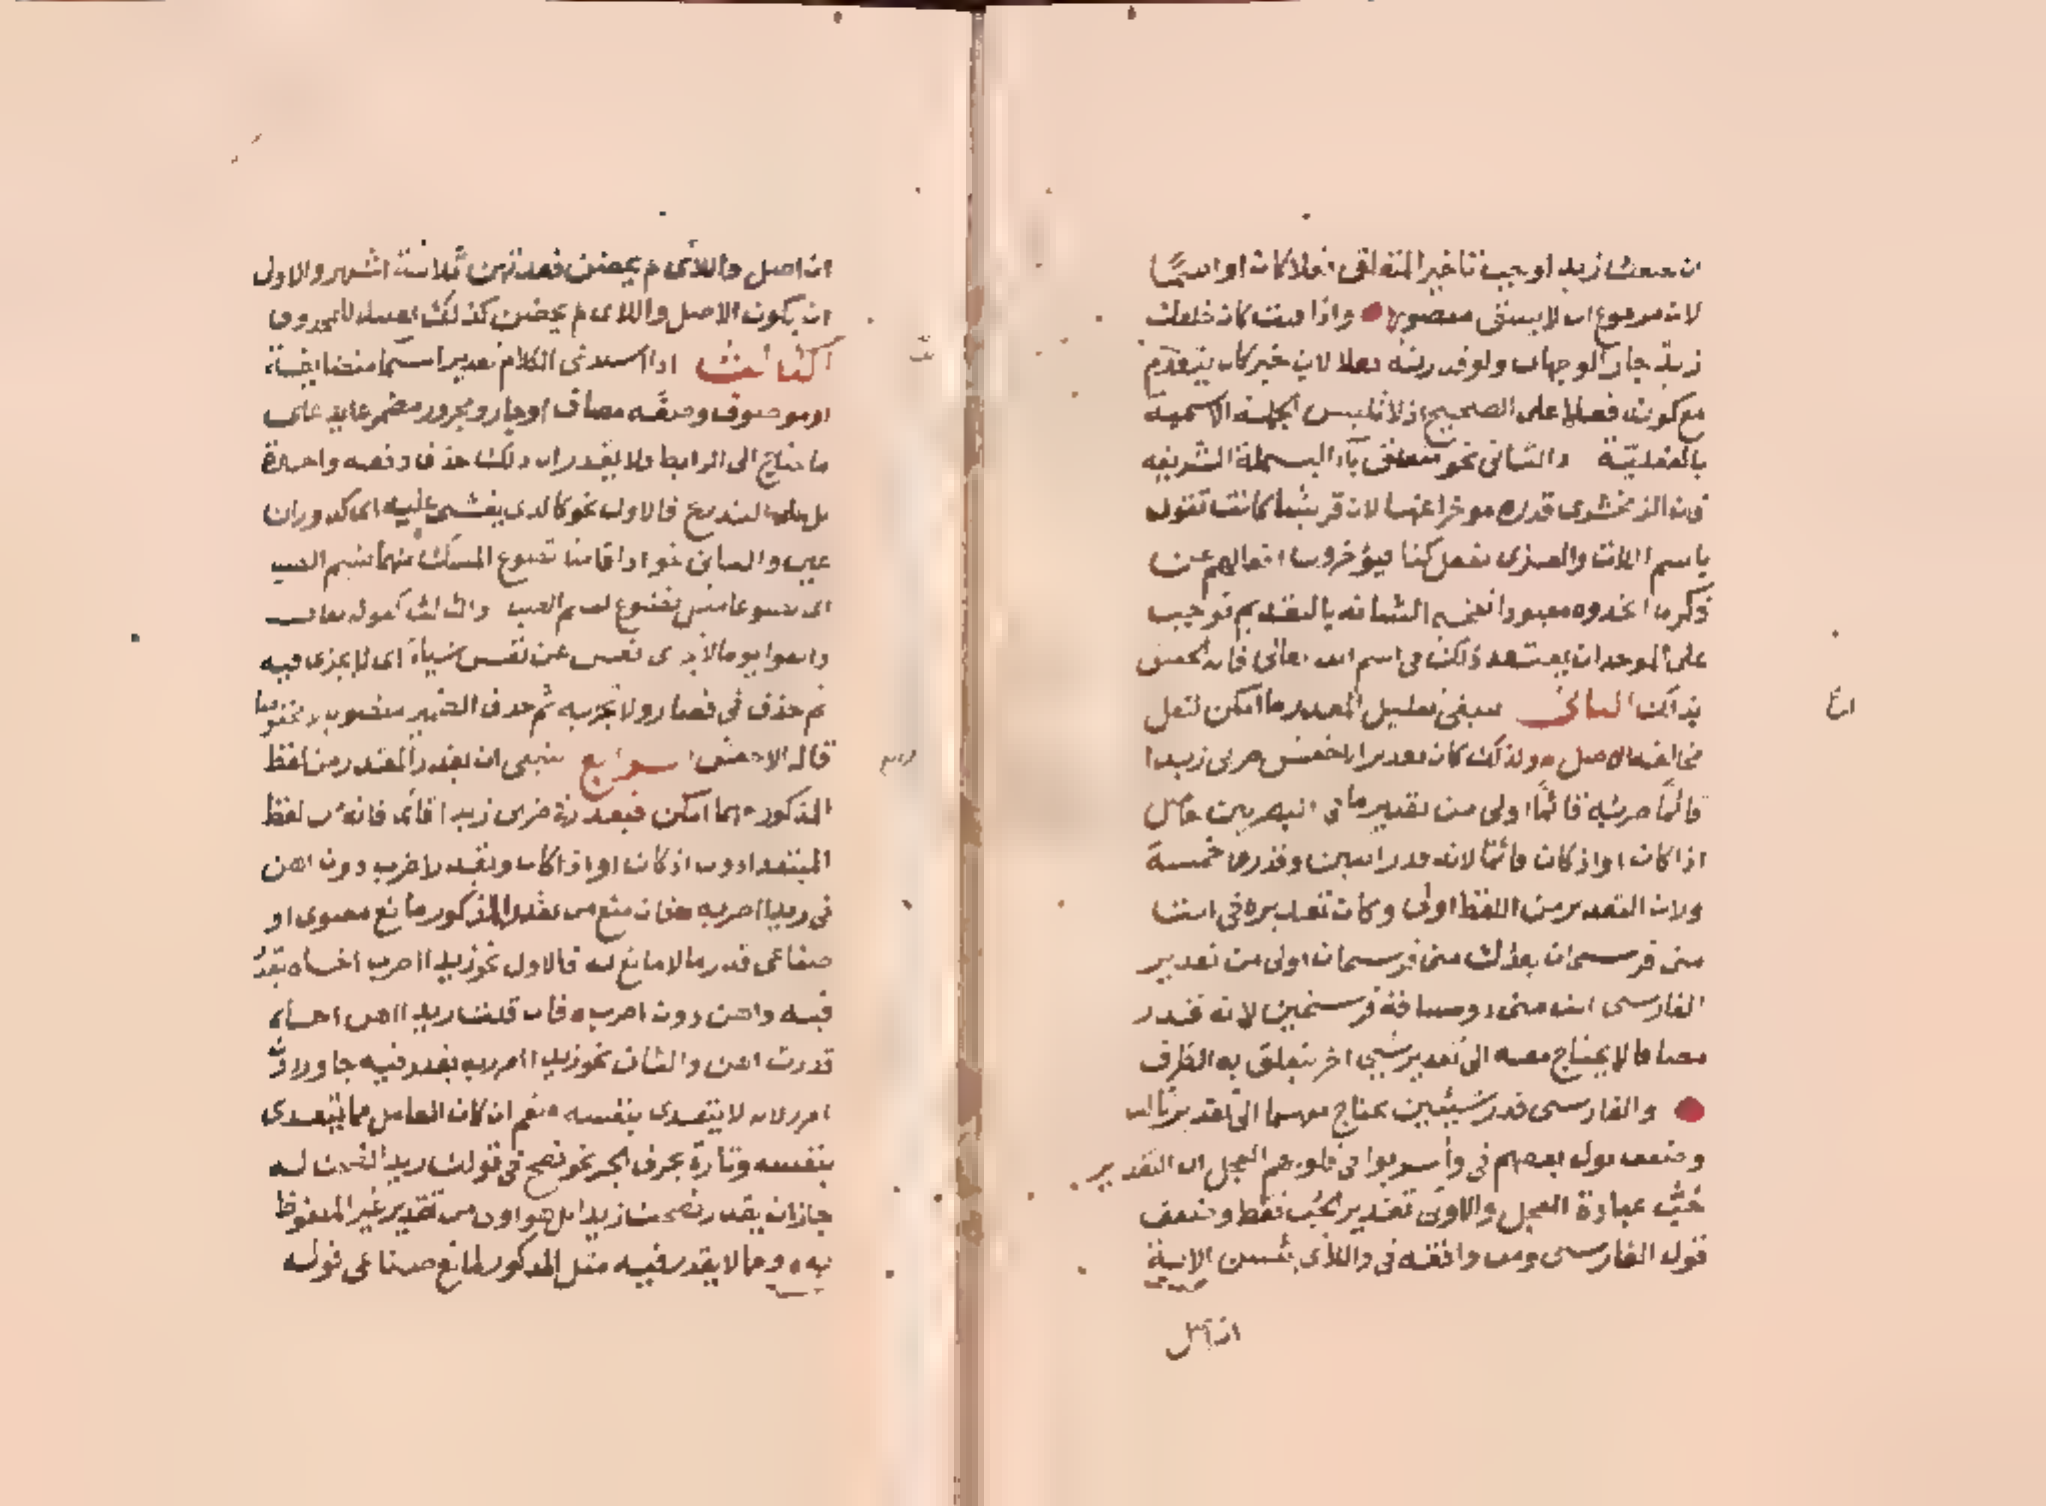 ان ضربت زيد اوجب تاخير المتعلق فعلا كان او اسما
لان مرفوع ان لا يسبق منصوبها واذا قلت كان خلفك
زيد جاز الوجهان ولو قدرته فعلا لان خبر كان يتقدم
مع كونه فعلا على الصحيح اذ لا تلتبس الجملة الاسمية
بالفعلية والثاني نحو متعلق باء البسملة الشريفة
فان الزمخشري قدره موخرا عنها لان قريشا كانت تقول
باسم اللات والعزى نفعل كذا فيؤخرون افعالهم عن
ذكر ما اتخذوه معبودا تفخيما لشانه بالتقديم فوجب
على الموحد ان يعتقد ذلك في اسم الله تعالى فانه الحقيق
بذلك الثاني ينبغي تقليل المقدر ما امكن لتقل
مخالفة الاصل ولذلك كان تقدير الاخفش ضربي زيدا
قائما ضربه قائما اولى من تقدير باقي البصريين حاصل
اذا كان او اذ كان قائما لانه قدر اثنين وقدروا خمسة
ولان التقدير من اللفظ اولى وكان تقديره في انت
مني فرسخان بعدك مني فرسخان اولى من تقدير
الفارسي انت مني ذو مسافة فرسخين لانه قدر
مضافا لا يحتاج معه الى تقدير شيء اخر يتعلق به الظرف
والفارسي قدر شيئين يحتاج معهما الى تقدير ثالث
وضعف قول بعضهم في واشربوا في قلوبهم العجل ان التقدير
حب عبادة العجل والاولى تقدير الحب فقط وضعف
قول الفارسي ومن وافقه في واللائي يئسن الاية
ان الاصل
ان اصل واللائي لم يحضن فعدتهن ثلاثة اشهر والاولى
ان يكون الاصل واللائي لم يحضن كذلك
الثالث اذا استدعى الكلام تقدير اسما متضايفة
او موصوف وصفة مضاف او جار ومجرور مضمر عايد على
ما يحتاج الى الرابط فلا يقدر ان ذلك حذف دفعة واحدة
بل على التدريج فالاول نحو كالذي يغشى عليه اي كدوران
عين والثاني نحو اذا قامتا تضوع المسك منهما نسيم الصبا
اي تضوعا مثل تضوع نسيم الصبا والثالث كقوله تعالى
واتقوا يوما لا تجزي نفس عن نفس شيا اي لا يجزي فيه
ثم حذف في فصار ولا تجزيه ثم حذف الضمير منصوبا لا مخفوضا
قاله الاخفش الرابع ينبغي ان يقدر المقدر من لفظ
المذكور مهما امكن فيقدر في ضربي زيدا قائما ضربه فانه من لفظ
المبتدا دون اذ كان او اذا كان ويقدر اضرب دون اهن
في زيدا اضربه فان منع من تقدير المذكور مانع معنوي او
صناعي قدر ما لا مانع له فالاول نحو زيدا اضرب اخاه يقدر
فيه اهن دون اضرب فان قلت زيدا اهن اخاه
قدرت اهن والثان نحو زيدا امرر به يقدر فيه جاوز دون
امرر لانه لا يتعدى بنفسه نعم ان كان العامل مما يتعدى
بنفسه وتارة بحرف الجر نحو نصح في قولك زيدا نصحت له
جاز ان يقدر نصحت زيدا بل هو اولى من تقدير غير الملفوظ
به ومما لا يقدر فيه مثل المذكور لمانع صناعي قوله